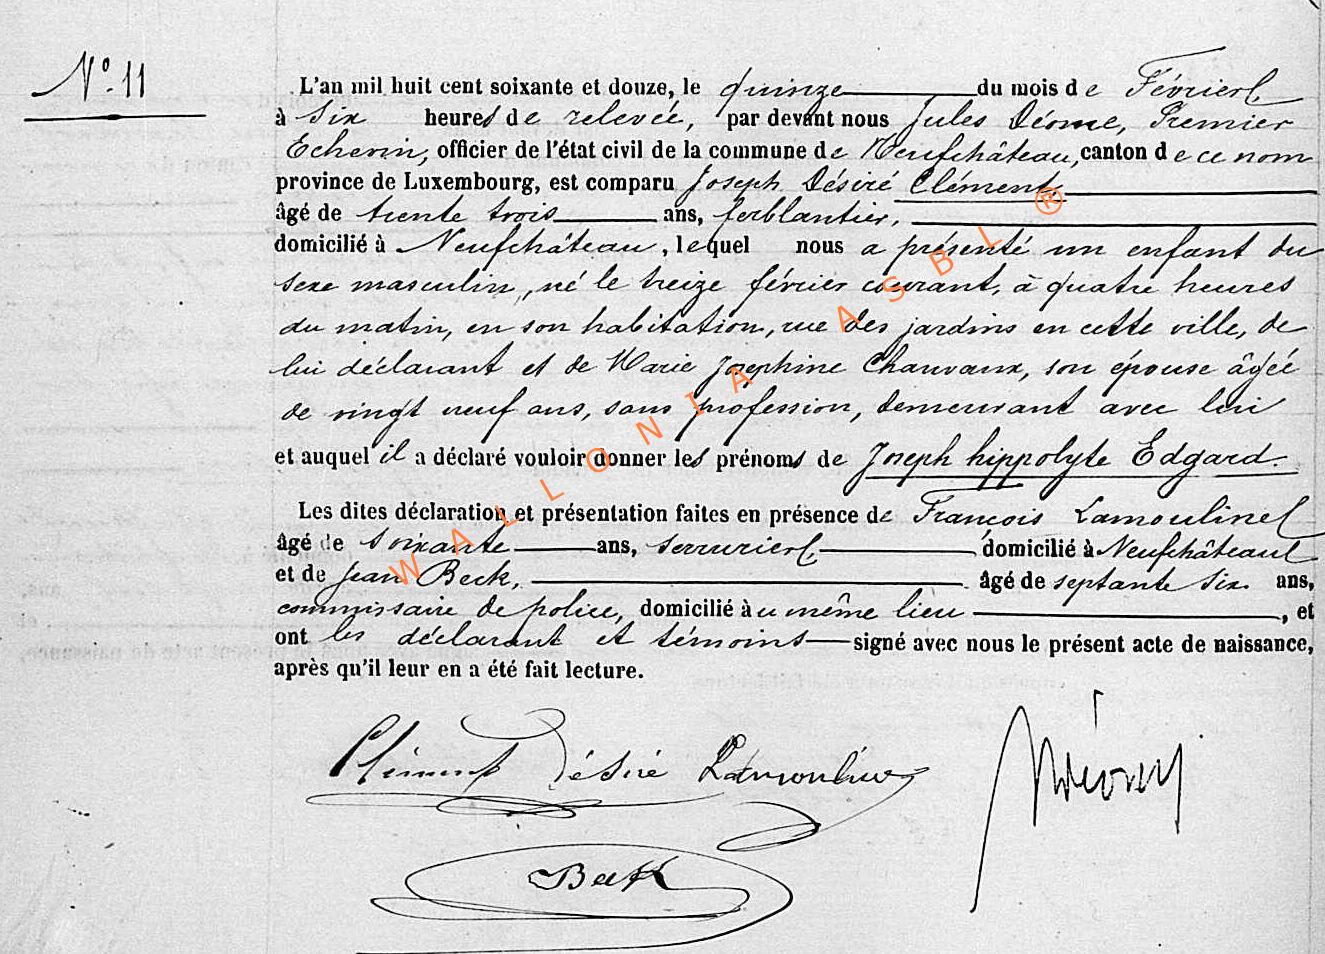 N° 11
L'an mil huit cent soixante et douze, le quinze du mois de Février
à six heures de relevée, par devant nous Jules Déome, Premier
Echevin, officier de l'état civil de la commune de Neufchâteau, canton de ce nom
province de Luxembourg, est comparu Joseph Désiré Clément,
âgé de trente trois ans, ferblantier,
domicilié à Neufchâteau, lequel nous a présenté un enfant du
sexe masculin, né le treize février courant, à quatre heures
du matin, en son habitation, rue des jardins en cette ville, de
lui déclarant et de Marie Josephine Chauvaux, son épouse âgée
de vingt neuf ans, sans profession, demeurant avec lui
et auquel il a déclaré vouloir donner les prénoms de Joseph hippolyte Edgard.
Les dites déclaration et présentation faites en présence de François Lamouline
âgé de soixante ans, serrurier, domicilié à Neufchâteau
et de Jean Beck, âgé de septante six ans,
commissaire de police, domicilié au même lieu, et
ont les déclarant et témoins signé avec nous le présent acte de naissance,
après qu'il leur en a été fait lecture.
Clément Désiré Lamouline
Beck
WALLONIA ASBL ®